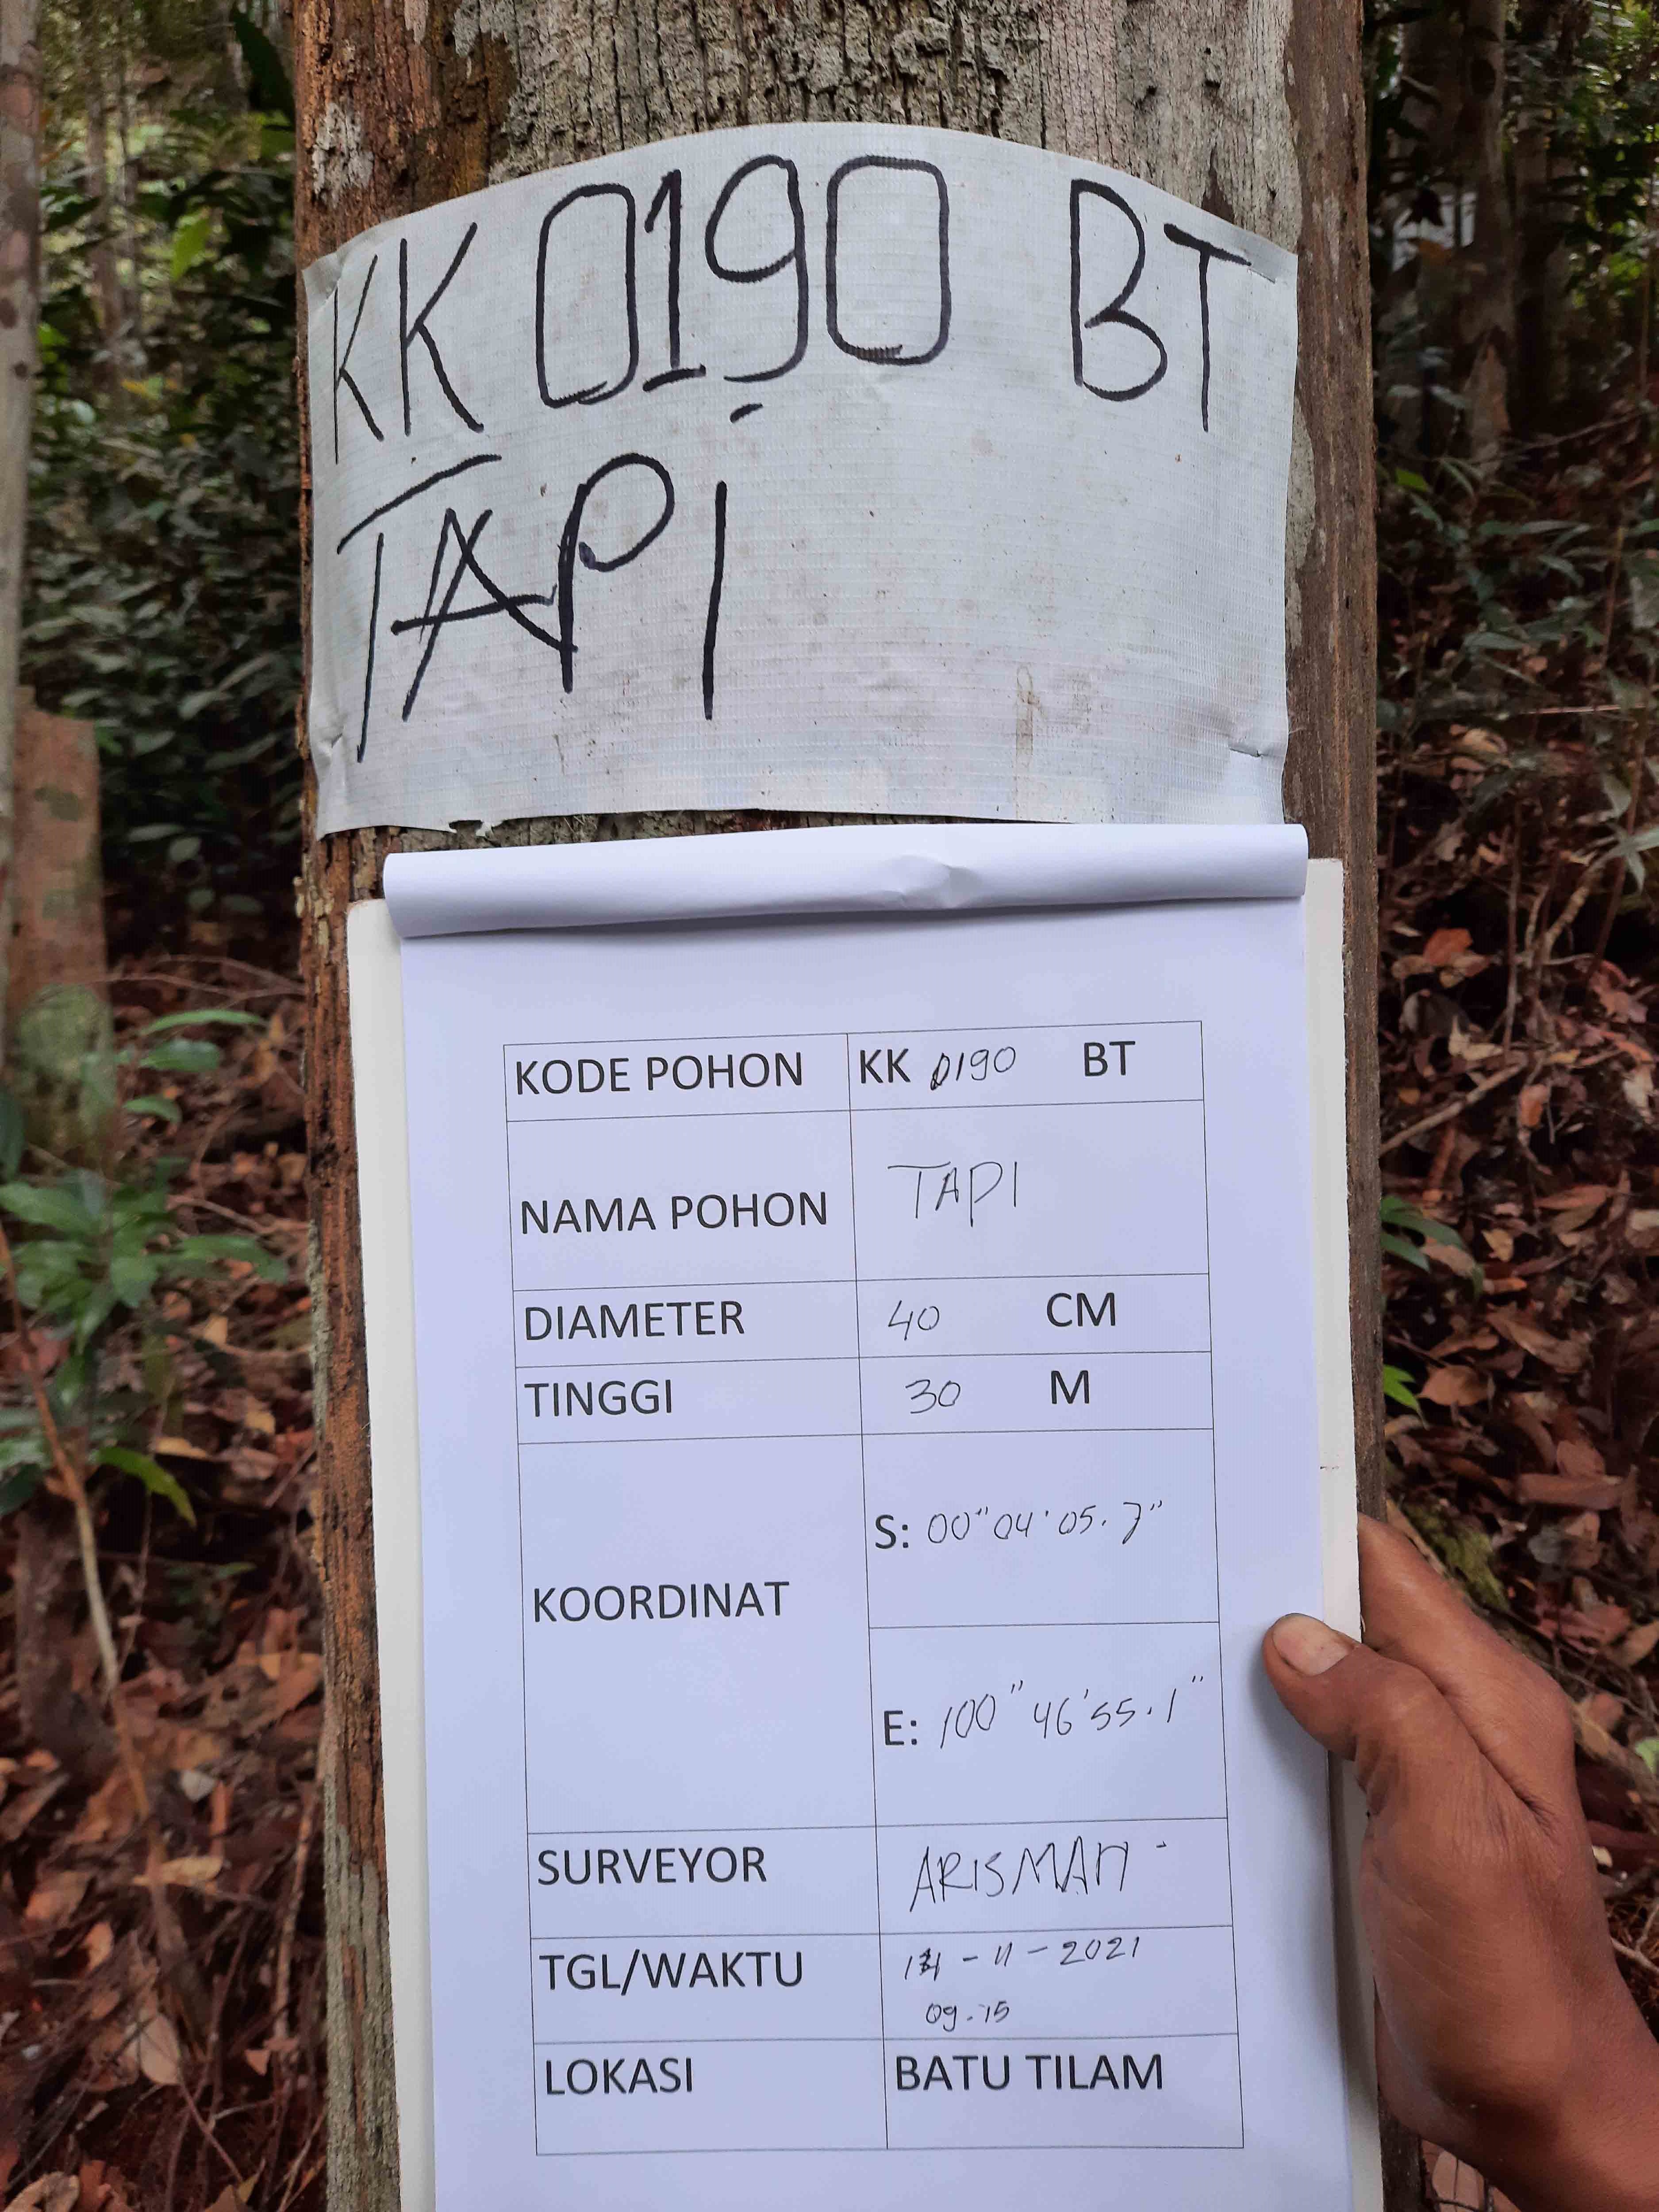 KK 0190 BT
TAPI
KODE POHON KK 0190 BT
NAMA POHON TAPI
DIAMETER 40 CM
TINGGI 30 M
KOORDINAT
S: 00" 04' 05.7"
E: 100" 46' 55.1"
SURVEYOR ARISMAN
TGL/WAKTU -11-2021
09.15
LOKASI BATU TILAM